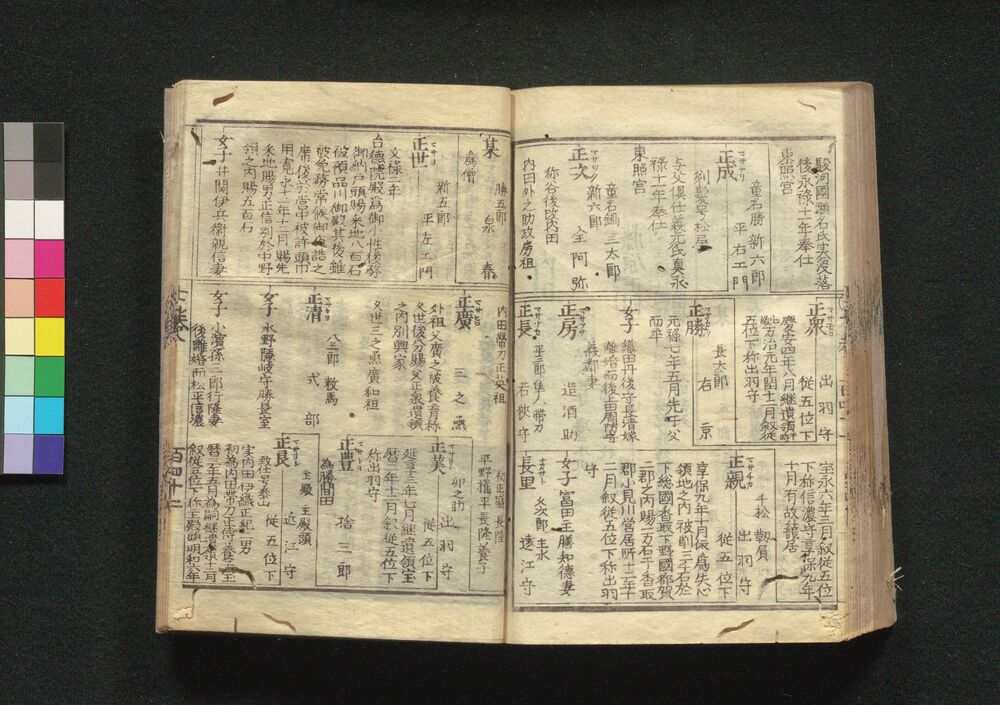 駿河國瀬名氏実没落
後永禄十一年奉仕
東照宮
正成
童名勝 新六郎
平右エ門
剃髪号松屋
与父倶仕義元氏真永
禄十一年奉仕
東照宮
正次
童名鍋 三太郎
新六郎 全阿弥
称谷後改内田
内田外之助攻房祖
正衆
出羽守
従五位下
慶安四年八月継遺領
治元年閏十二月叙従
五位下称出羽守
正勝
長太郎
右京
元禄七年五月先于父
而卒
女子
織田丹後守長清嫁
離婚而後土周防守
義郷妻
正房
造酒助
正長
平三郎 隼人 帯刀
若狭守
宝永六年三月叙従五位
下称信濃守享保九年
十月有故籠居
正親
千松 靱員
出羽守
従五位下
享保九年十月依為失心
領地之内被削三千石於
下総國香取下野國都賀
二郡之内賜一万石于香取
郡小見川営居所十二年十
二月叙従五位下称出羽
守
女子 富田主膳知徳妻
正里
久次郎 主水
遠江守
某
勝五郎
泉春
為僧
正世
新五郎
平左エ門
文禄三年
台徳院殿為御小性後称
御納戸頭賜釆地八百石
被預品川御殿其後雖
被免務常候御
席後於営中被許頭巾
用寛永十一年十二月賜先
釆地賜男正信別於中野
領之内賜五百石
女子 井関伊兵衛親信妻
内田帯刀正芙祖
正廣
三之烝
外祖父廣之被養育称
久世後分賜父正衆遺領
之内別興家
久世三之烝廣和祖
正清
八三郎 数馬
式部
女子 水野隠岐守勝長室
女子 小濱孫三郎行隆妻
後離婚而松平信濃
初正應 長隆
平野権平長隆養子
正美
卯之助
出羽守
従五位下
延享三年七月継遺領宝
暦三年十二月叙従五位下
称出羽守
正豊
捨三郎
為勝間田
主殿 主殿頭
正良
近江守
従五位下
致仕号泰山
実内田伊織正紀二男
初為内田帯刀正侍養
暦三年五月為嗣継十二月
叙従五位下称主殿頭明和八年
百四十二